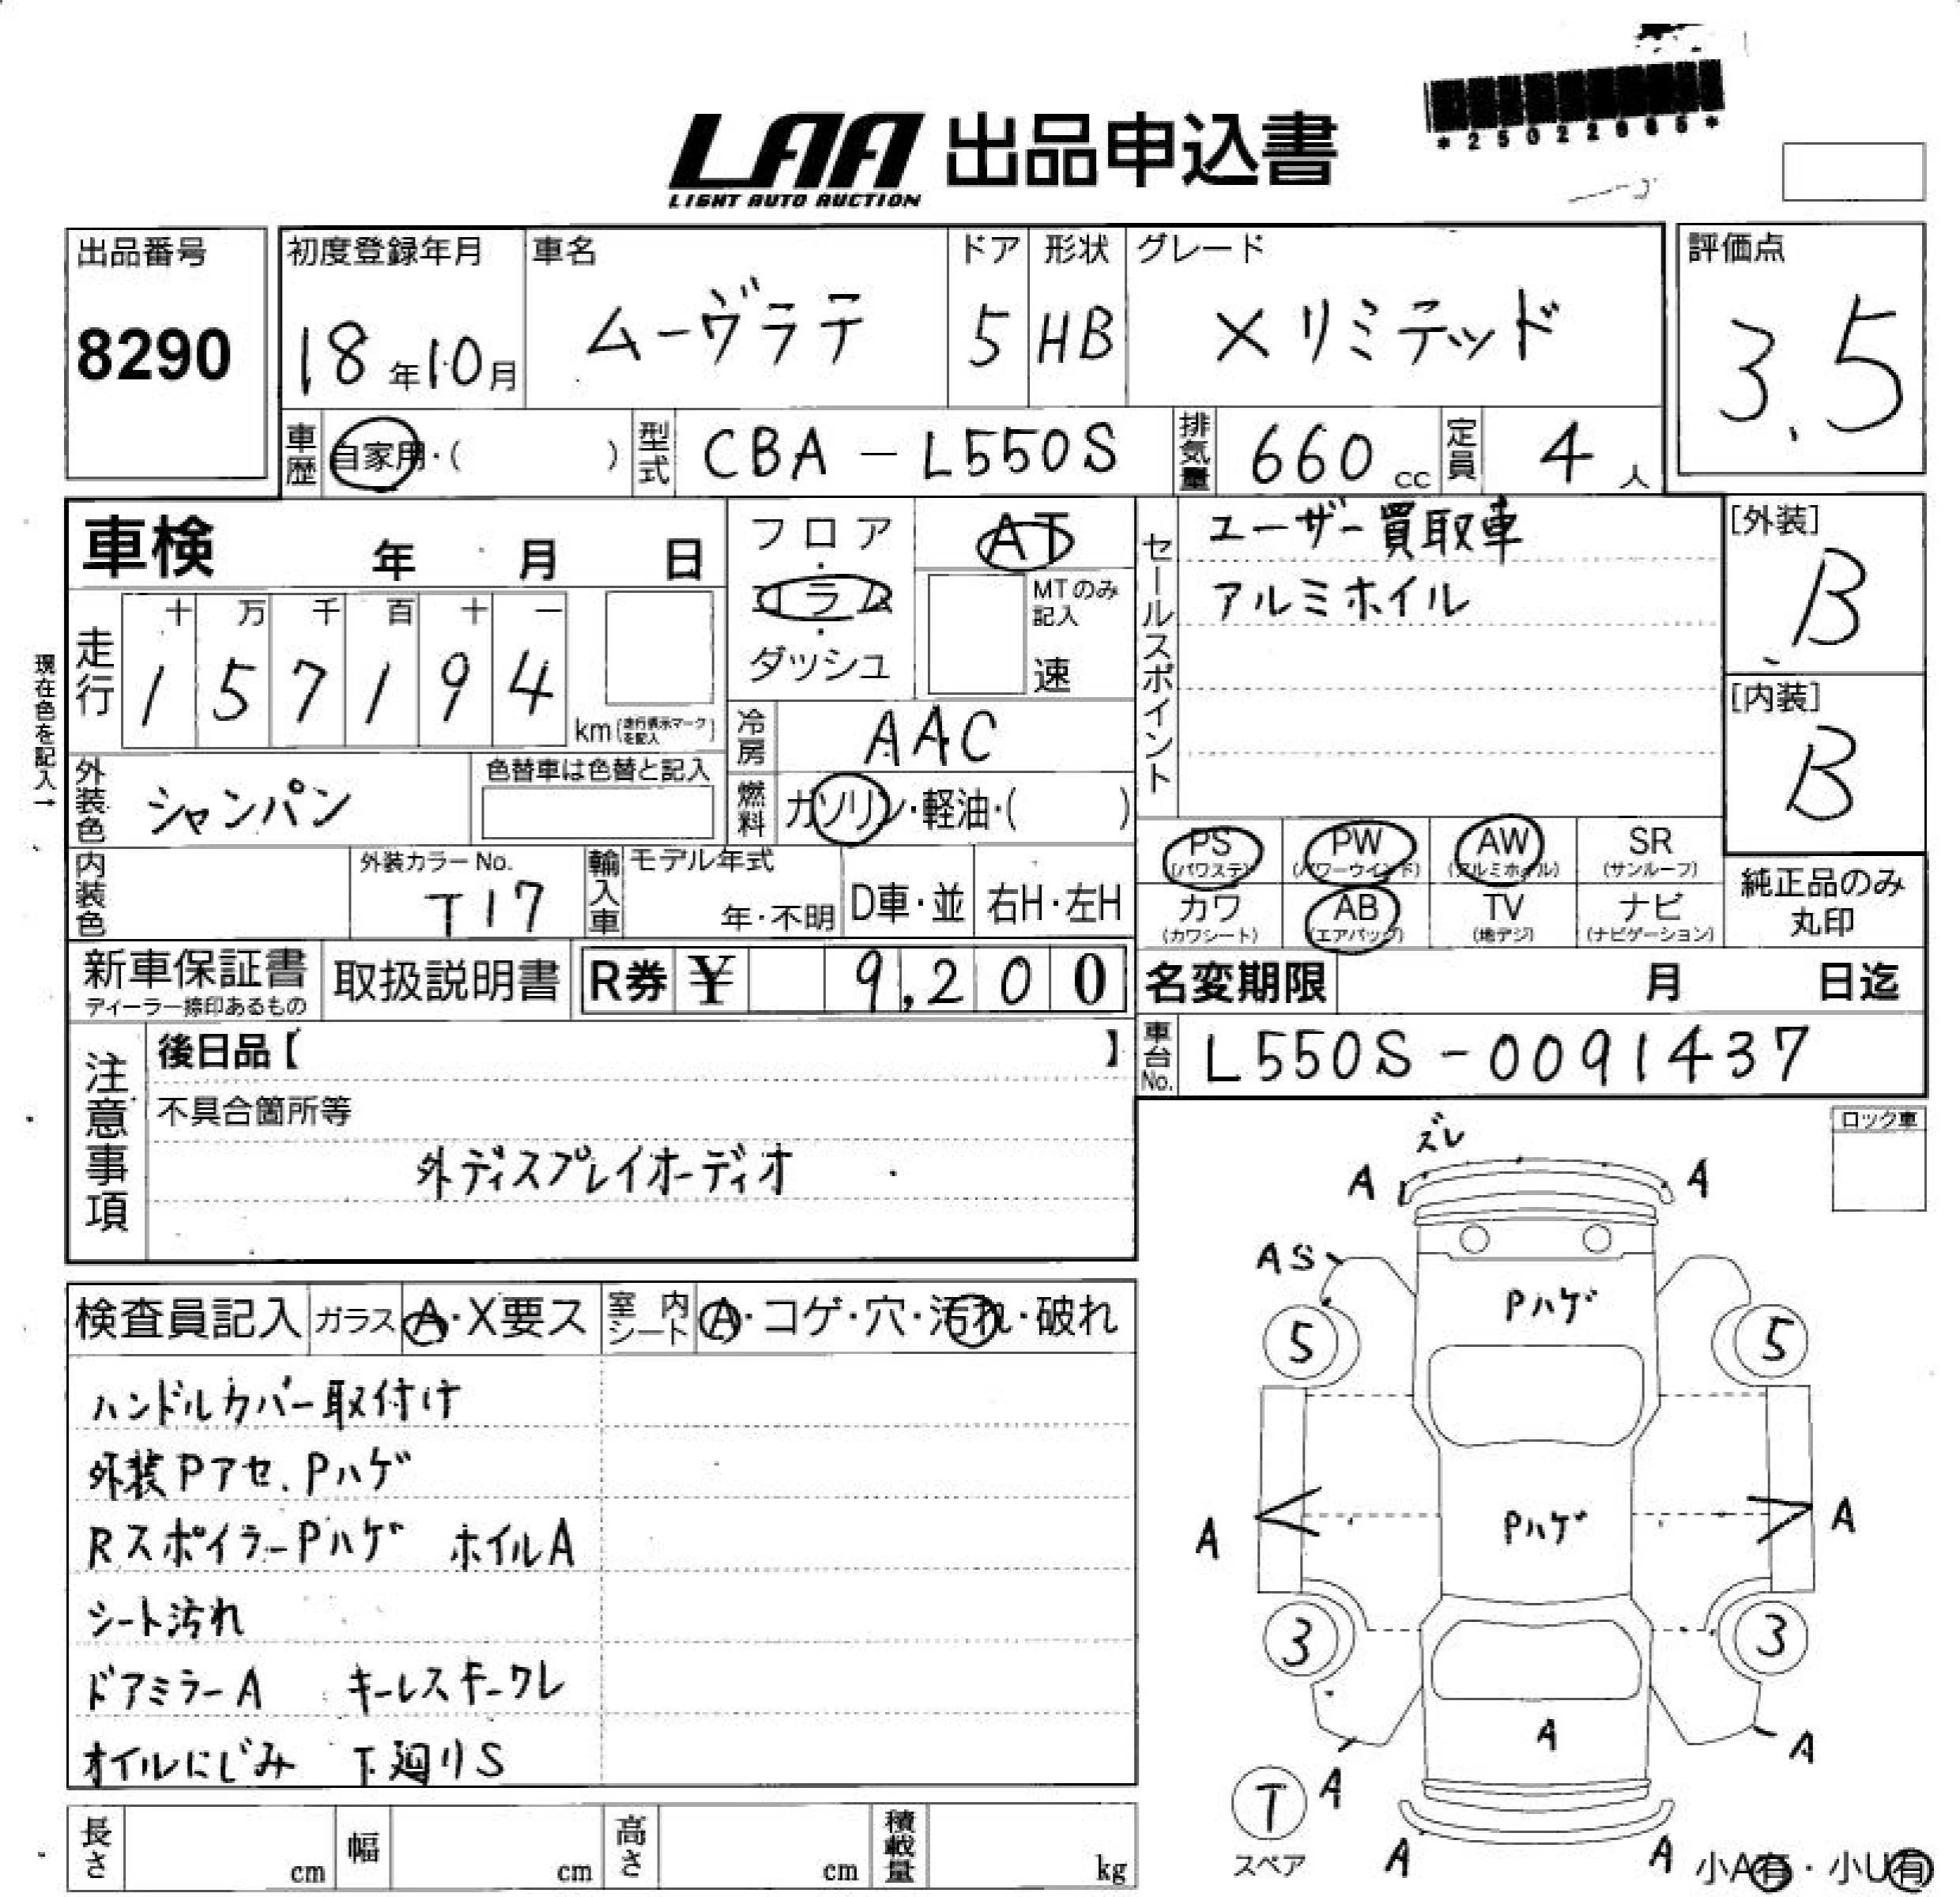 *25022965*
LAA 出品申込書
LIGHT AUTO AUCTION
出品番号 8290
初度登録年月 18年10月
車名 ムーヴラテ
ドア 5
形状 HB
グレード Xリミテッド
評価点 3.5
車歴 自家用・( )
型式 CBA-L550S
排気量 660cc
定員 4人
車検 年 月 日
フロア・コラム・ダッシュ
AT
MTのみ記入
速
セールスポイント
ユーザー買取車
アルミホイル
[外装]
B
[内装]
B
現在色を記入→
走行
十 万 千 百 十 一
1 5 7 1 9 4 km(走行表示マークを記入)
冷房 AAC
外装色 シャンパン
色替車は色替と記入
燃料 ガソリン・軽油・( )
PS (パワステ) PW (パワーウインド) AW (アルミホイル) SR (サンルーフ)
カワ (カワシート) AB (エアバッグ) TV (地デジ) ナビ (ナビゲーション)
純正品のみ丸印
内装色
外装カラーNo. T17
輸入車
モデル年式 年・不明
D車・並
右H・左H
新車保証書
ディーラー捺印あるもの
取扱説明書
R券 ¥ 9,200
名変期限 月 日迄
車台No. L550S-0091437
注意事項
後日品【 】
不具合箇所等
外ディスプレイオーディオ
ロック車
検査員記入
ガラス A・X要ス
室内シート A・コゲ・穴・汚れ・破れ
ハンドルカバー取付け
外装Pアセ、Pハゲ
RスポイラーPハゲ ホイルA
シート汚れ
ドアミラーA キーレスキークレ
オイルにじみ 下廻りS
ズレ
A A
AS
Pハゲ
5 5
A Pハゲ A
3 3
A
A A
T
スペア
A A
小A有・小U有
長さ cm
幅 cm
高さ cm
積載量 kg